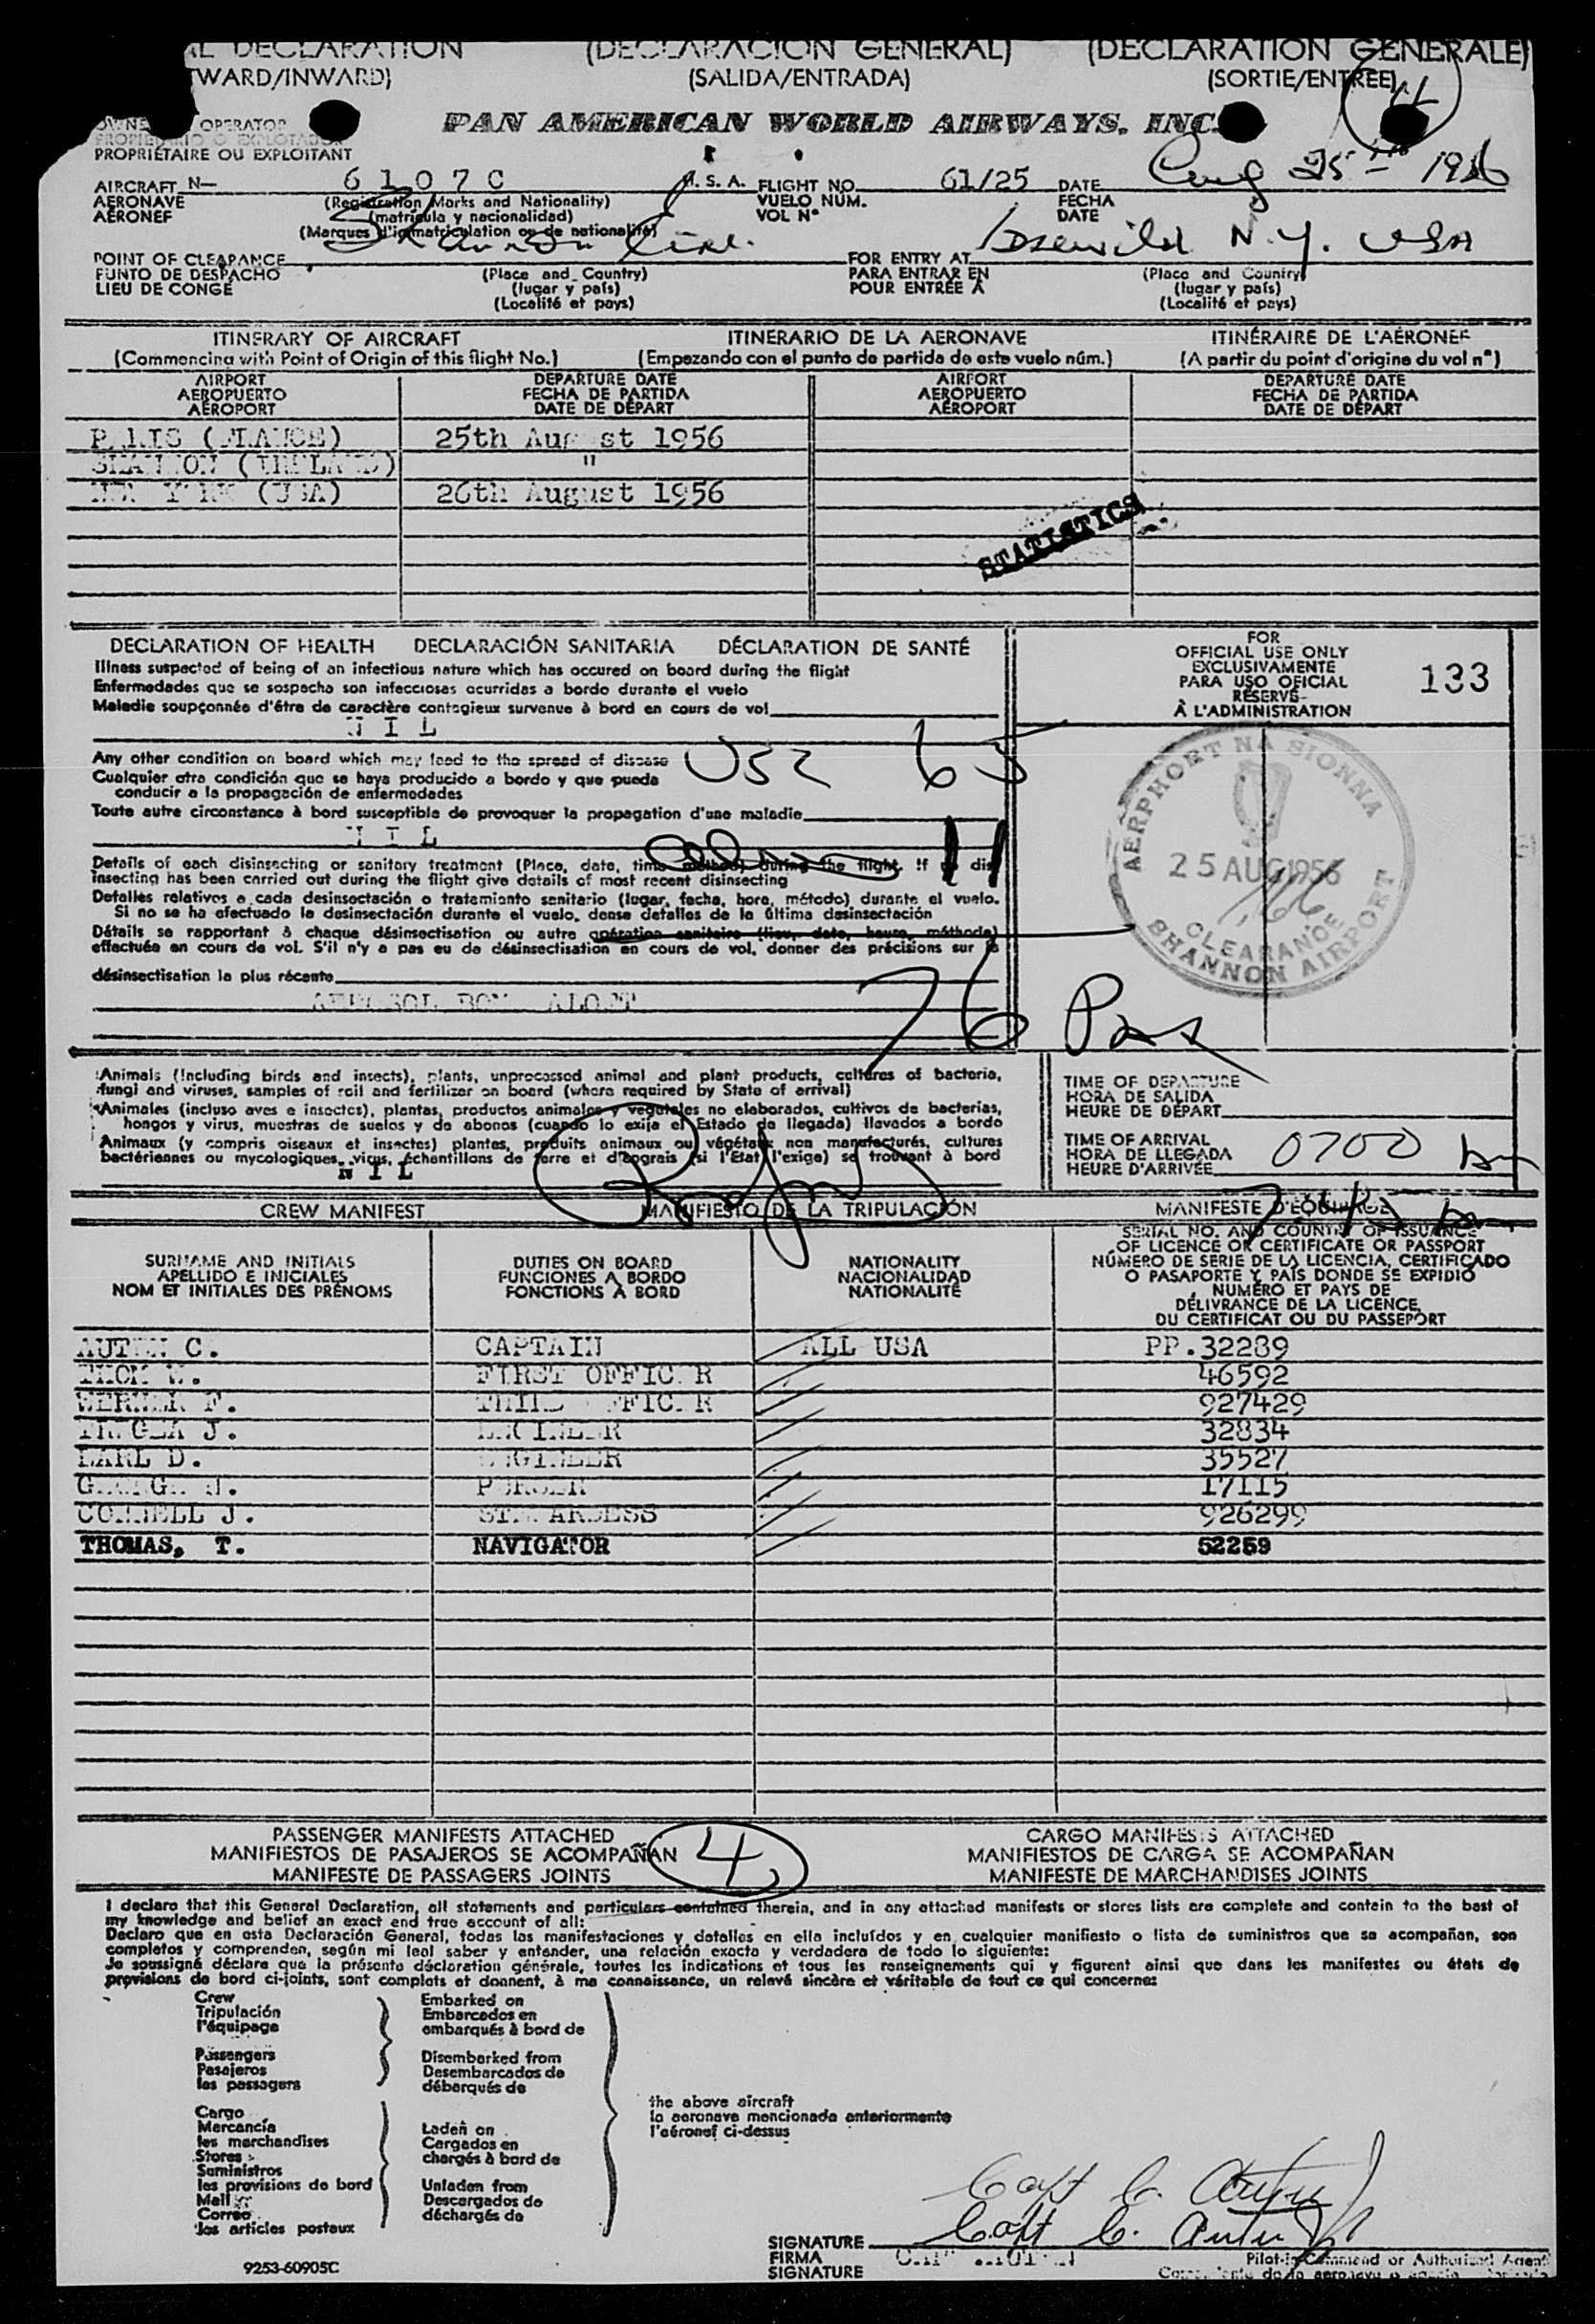 DECLARATION (DECLARACIÓN GENERAL) (DECLARATION GENERALE)
WARD/INWARD) (SALIDA/ENTRADA) (SORTIE/ENTREE)
OPERATOR
PROPRIETAIRE OU EXPLOITANT
PAN AMERICAN WORLD AIRWAYS, INC.
AIRCRAFT N— 6107C U.S.A. FLIGHT NO. 61/25 DATE Aug 25th 1956
AERONAVE (Registration Marks and Nationality) VUELO NÚM. FECHA
AÉRONEF (matrícula y nacionalidad) VOL N° DATE
(Marques d'immatriculation ou de nationalité)
POINT OF CLEARANCE Shannon Eire. FOR ENTRY AT Idlewild N.Y. USA
PUNTO DE DESPACHO (Place and Country) PARA ENTRAR EN (Place and Country)
LIEU DE CONGÉ (lugar y país) POUR ENTRÉE À (lugar y país)
(Localité et pays) (Localité et pays)
ITINERARY OF AIRCRAFT ITINERARIO DE LA AERONAVE ITINÉRAIRE DE L'AÉRONEF
(Commencing with Point of Origin of this flight No.) (Empezando con el punto de partida de este vuelo núm.) (A partir du point d'origine du vol n°)
AIRPORT DEPARTURE DATE AIRPORT DEPARTURE DATE
AEROPUERTO FECHA DE PARTIDA AEROPUERTO FECHA DE PARTIDA
AÉROPORT DATE DE DÉPART AÉROPORT DATE DE DÉPART
PARIS (FRANCE) 25th August 1956
SHANNON (IRELAND) "
NEW YORK (USA) 26th August 1956
STATISTICS
DECLARATION OF HEALTH DECLARACIÓN SANITARIA DÉCLARATION DE SANTÉ
Illness suspected of being of an infectious nature which has occured on board during the flight
Enfermedades que se sospecha son infecciosas ocurridas a bordo durante el vuelo
Maladie soupçonnée d'être de caractère contagieux survenue à bord en cours de vol
NIL
FOR
OFFICIAL USE ONLY
EXCLUSIVAMENTE
PARA USO OFICIAL
RÉSERVÉ
À L'ADMINISTRATION
133
Any other condition on board which may lead to the spread of disease
Cualquier otra condición que se haya producido a bordo y que pueda
conducir a la propagación de enfermedades
Toute autre circonstance à bord susceptible de provoquer la propagation d'une maladie
NIL
65
11
Details of each disinsecting or sanitary treatment (Place, date, time, method) during the flight. If no dis-
insecting has been carried out during the flight give details of most recent disinsecting
Detalles relativos a cada desinsectación o tratamiento sanitario (lugar, fecha, hora, método) durante el vuelo.
Si no se ha efectuado la desinsectación durante el vuelo, dense detalles de la última desinsectación
Détails se rapportant à chaque désinsectisation ou autre opération sanitaire (lieu, date, heure, méthode)
effectuée en cours de vol. S'il n'y a pas eu de désinsectisation en cours de vol, donner des précisions sur la
désinsectisation la plus récente
AEROSOL BOMB ALOFT
76 Pax
AERPHORT NA SIONNA
25 AUG 1956
CLEARANCE
SHANNON AIRPORT
Animals (Including birds and insects), plants, unprocessed animal and plant products, cultures of bacteria,
fungi and viruses, samples of soil and fertilizer on board (where required by State of arrival)
Animales (incluso aves e insectos), plantas, productos animales y vegetales no elaborados, cultivos de bacterias,
hongos y virus, muestras de suelos y de abonos (cuando lo exija el Estado de llegada) llevados a bordo
Animaux (y compris oiseaux et insectes) plantes, produits animaux ou végétaux non manufacturés, cultures
bactériennes ou mycologiques, virus, échantillons de terre et d'engrais (si l'Etat l'exige) se trouvant à bord
NIL
TIME OF DEPARTURE
HORA DE SALIDA
HEURE DE DÉPART
TIME OF ARRIVAL
HORA DE LLEGADA
HEURE D'ARRIVÉE 0700
CREW MANIFEST MANIFIESTO DE LA TRIPULACIÓN MANIFESTE D'ÉQUIPAGE
SURNAME AND INITIALS
APELLIDO E INICIALES
NOM ET INITIALES DES PRÉNOMS
DUTIES ON BOARD
FUNCIONES A BORDO
FONCTIONS À BORD
NATIONALITY
NACIONALIDAD
NATIONALITÉ
SERIAL NO. AND COUNTRY OF ISSUANCE
OF LICENCE OR CERTIFICATE OR PASSPORT
NÚMERO DE SERIE DE LA LICENCIA, CERTIFICADO
O PASAPORTE Y PAÍS DONDE SE EXPIDIÓ
NUMÉRO ET PAYS DE
DÉLIVRANCE DE LA LICENCE,
DU CERTIFICAT OU DU PASSEPORT
AUTEN C. CAPTAIN ALL USA PP.32289
THOM W. FIRST OFFICER 46592
WERNER F. THIRD OFFICER 927429
J. ENGINEER 32834
EARL D. ENGINEER 35527
PURSER 17115
CONNELL J. STEWARDESS 926299
THOMAS, T. NAVIGATOR 52259
PASSENGER MANIFESTS ATTACHED CARGO MANIFESTS ATTACHED
MANIFIESTOS DE PASAJEROS SE ACOMPAÑAN 4 MANIFIESTOS DE CARGA SE ACOMPAÑAN
MANIFESTE DE PASSAGERS JOINTS MANIFESTE DE MARCHANDISES JOINTS
I declare that this General Declaration, all statements and particulars contained therein, and in any attached manifests or stores lists are complete and contain to the best of
my knowledge and belief an exact and true account of all:
Declaro que en esta Declaración General, todas las manifestaciones y detalles en ella incluídos y en cualquier manifiesto o lista de suministros que se acompañan, son
completos y comprenden, según mi leal saber y entender, una relación exacta y verdadera de todo lo siguiente:
Je soussigné déclare que la présente déclaration générale, toutes les indications et tous les renseignements qui y figurent ainsi que dans les manifestes ou états de
provisions de bord ci-joints, sont complets et donnent, à ma connaissance, un relevé sincère et véritable de tout ce qui concerne:
Crew Embarked on
Tripulación Embarcados en
l'équipage embarqués à bord de
Passengers Disembarked from
Pasajeros Desembarcados de
les passagers débarqués de
the above aircraft
la aeronave mencionada anteriormente
l'aéronef ci-dessus
Cargo
Mercancía Laden on
les marchandises Cargados en
Stores chargés à bord de
Suministros
les provisions de bord Unladen from
Mail Descargados de
Correo déchargés de
les articles postaux
Capt C. Auten
Capt C. Auten
SIGNATURE
FIRMA CAPT AUTEN
SIGNATURE
Pilot-in-Command or Authorized Agent
9253-60905C